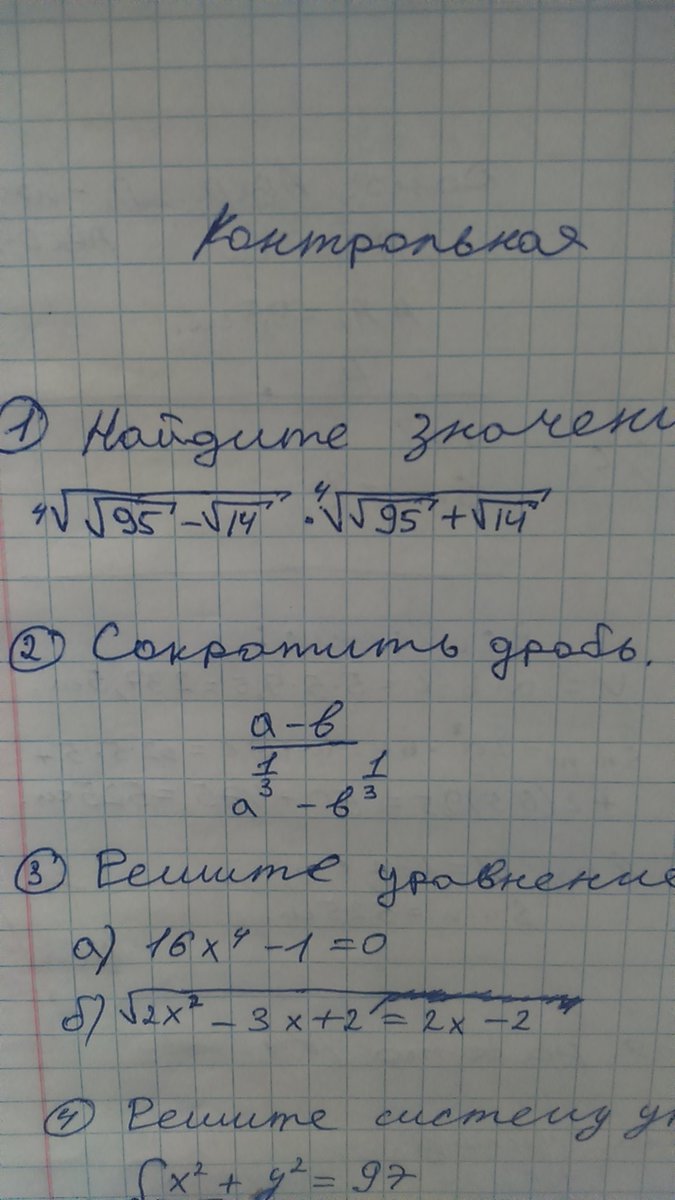 Контрольная
① Найдите значени
⁴√(√95 - √14) · ⁴√(√95 + √14)
② Сократить дробь.
a - b
a^(1/3) - b^(1/3)
③ Решите уравнение
а) 16x⁴ - 1 = 0
б) √(2x² - 3x + 2) = 2x - 2
④ Решите систему у
{ x² + y² = 97